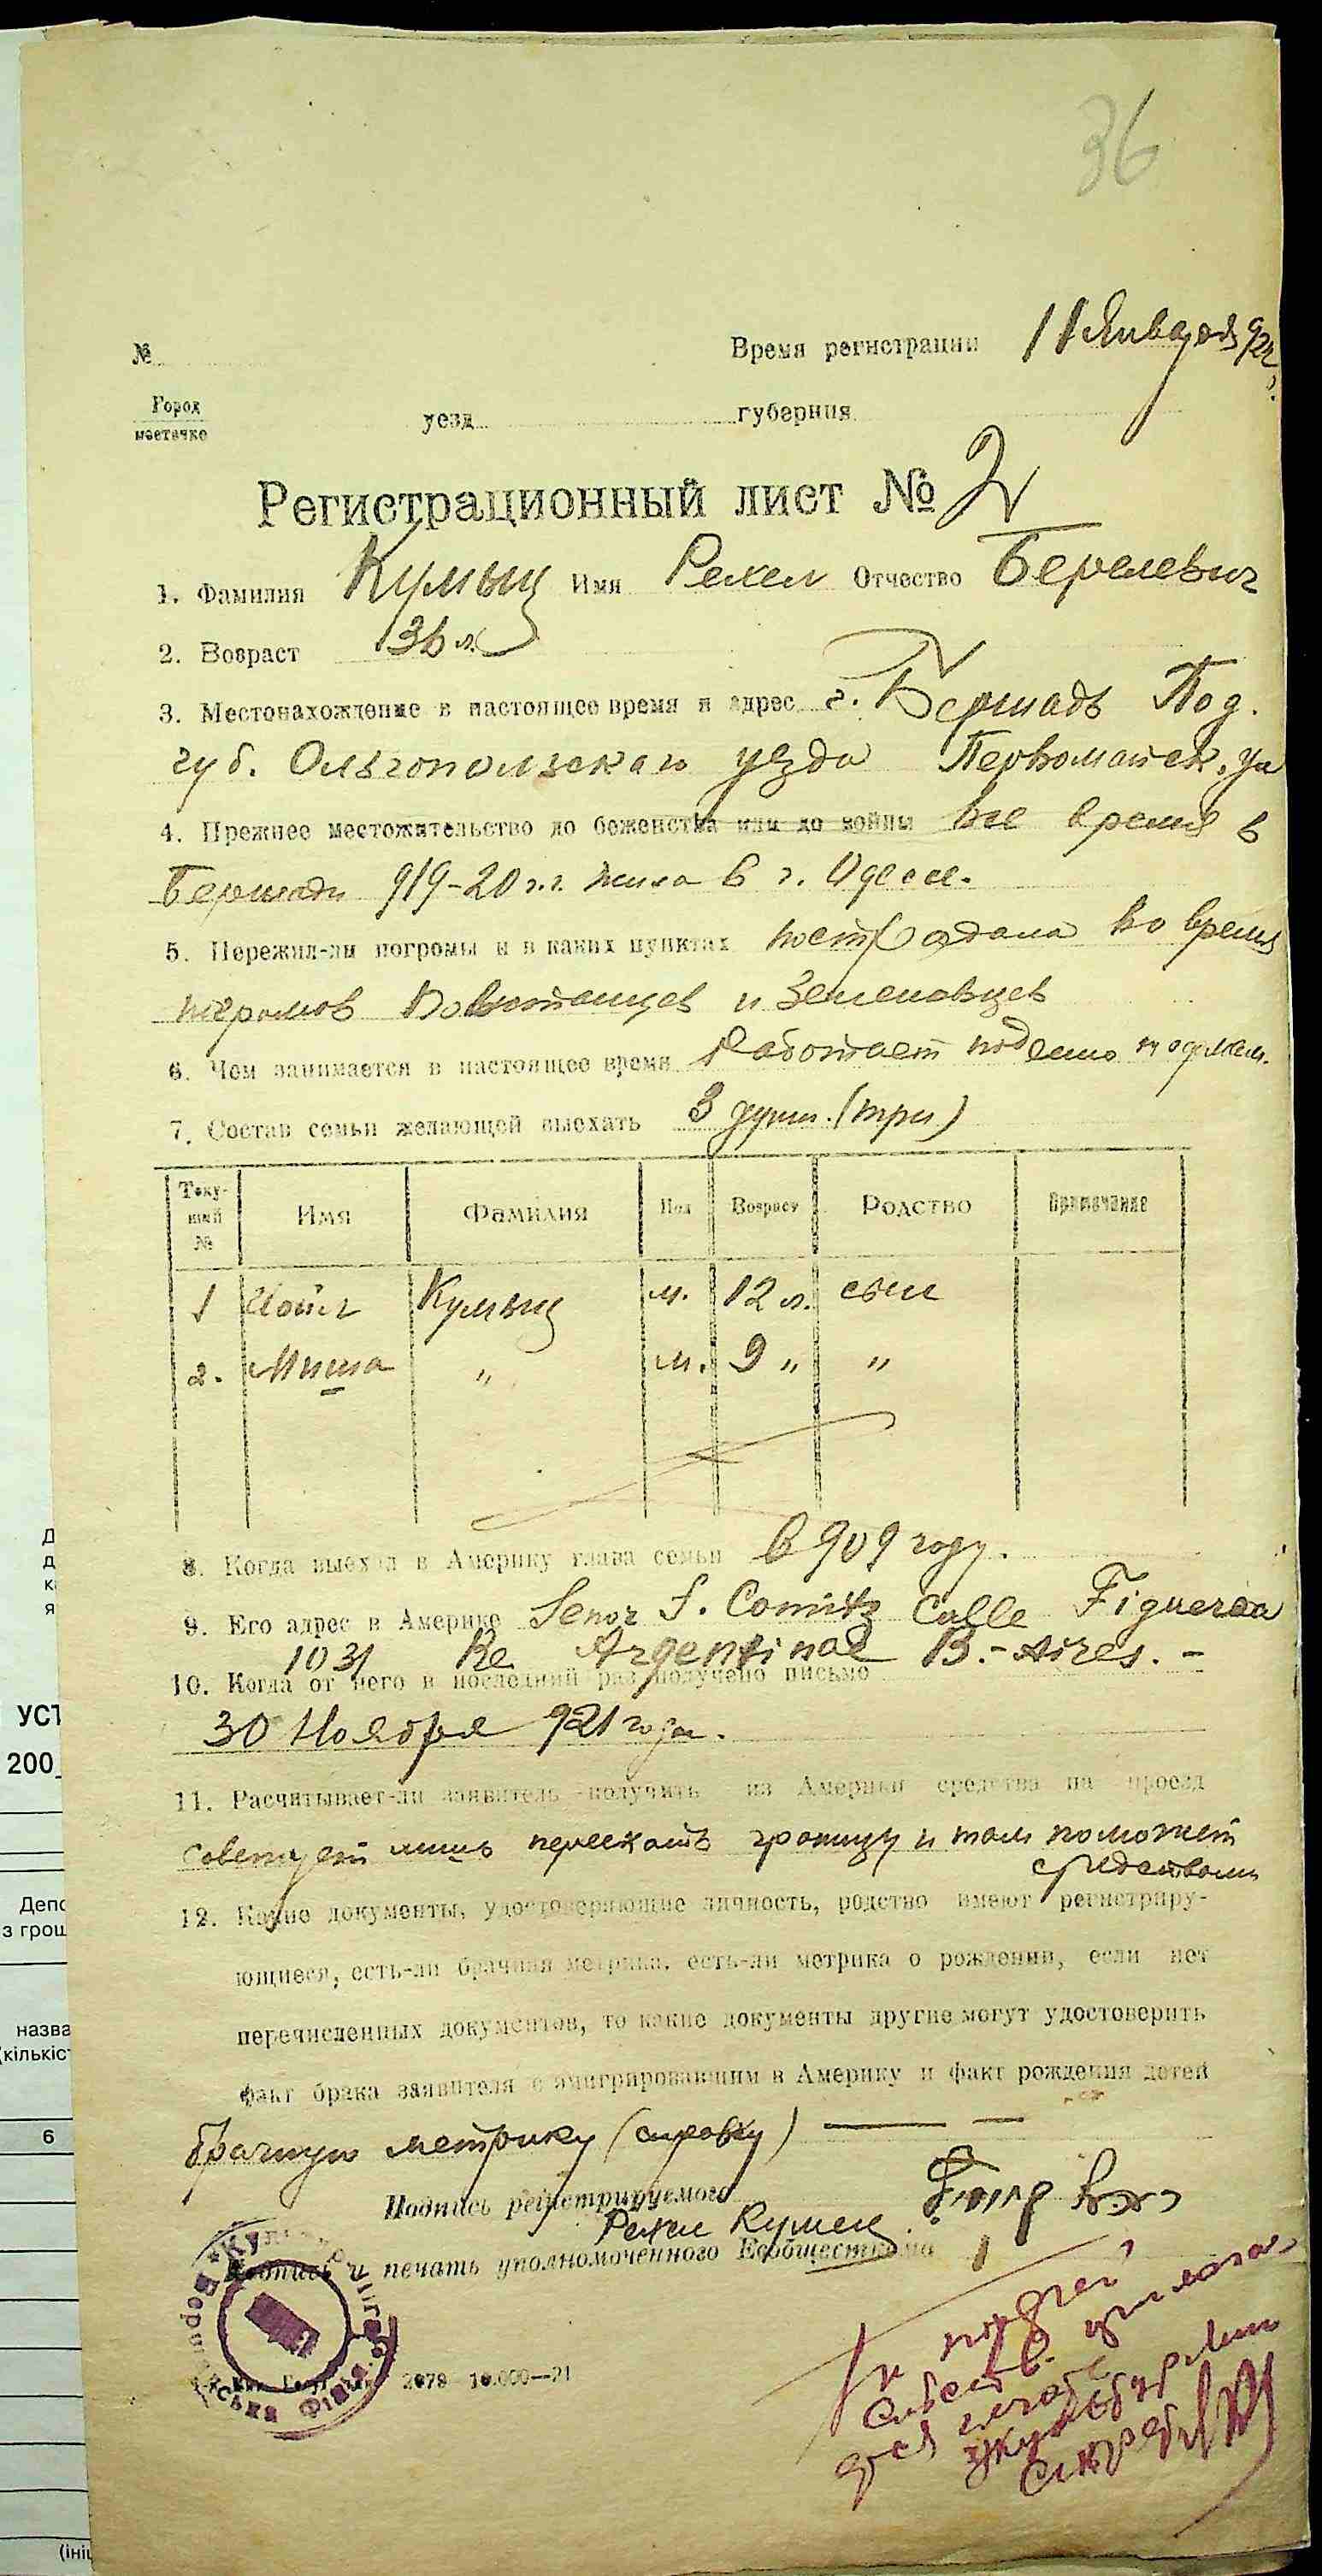 36
№ Время регистрации 11 Января 922
Город местечко уезд губерния
Регистрационный лист № 2
1. Фамилия Кумыц Имя Рехел Отчество Берелевич
2. Возраст 36 л.
3. Местонахождение в настоящее время и адрес г. Бершадь Под.
губ. Ольгопольскаго уезда Первомайск. ул
4. Прежнее местожительство до беженства или до войны все время в
Бершади 919-20 г.г. жила в г. Одессе.
5. Пережил-ли погромы и в каких пунктах пострадала во время
погромов Повстанцев и Зеленовцев
6. Чем занимается в настоящее время Работает
7. Состав семьи желающей выехать 3 душ. (три)
Теку-щий № Имя Фамилия Пол Возраст Родство Примечание
1 Кумыц м. 12 л. сын
2. Миша " м. 9 " "
8. Когда выехал в Америку глава семьи в 909 году.
9. Его адрес в Америке Senor S. Comitz Calle Figueroa
1031 Re Argentinae B.-Aires. -
10. Когда от него в последний раз получено письмо
30 Ноября 921 года.
11. Расчитывает-ли заявитель получить из Америки средства на проезд
советует лишь переехать границу и там поможет
средствами
12. Какие документы, удостоверяющие личность, родство имеют регистриру-
ющиеся, есть-ли брачная метрика, есть-ли метрика о рождении, если нет
перечисленных документов, то какие документы другие могут удостоверить
факт брака заявителя с эмигрировавшим в Америку и факт рождения детей
Брачную метрику (справку)
Подпись регистрируемого
Рехел Кумец
Подпись и печать уполномоченного Евобщесткома
2079 10.000—21
УСТ
200_
Депо
з грош
назва
(кількіст
6
(ініц